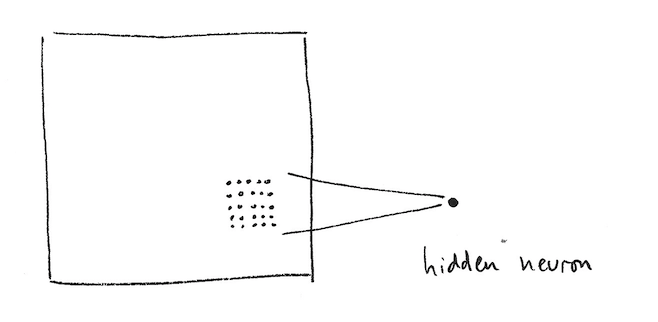 hidden neuron